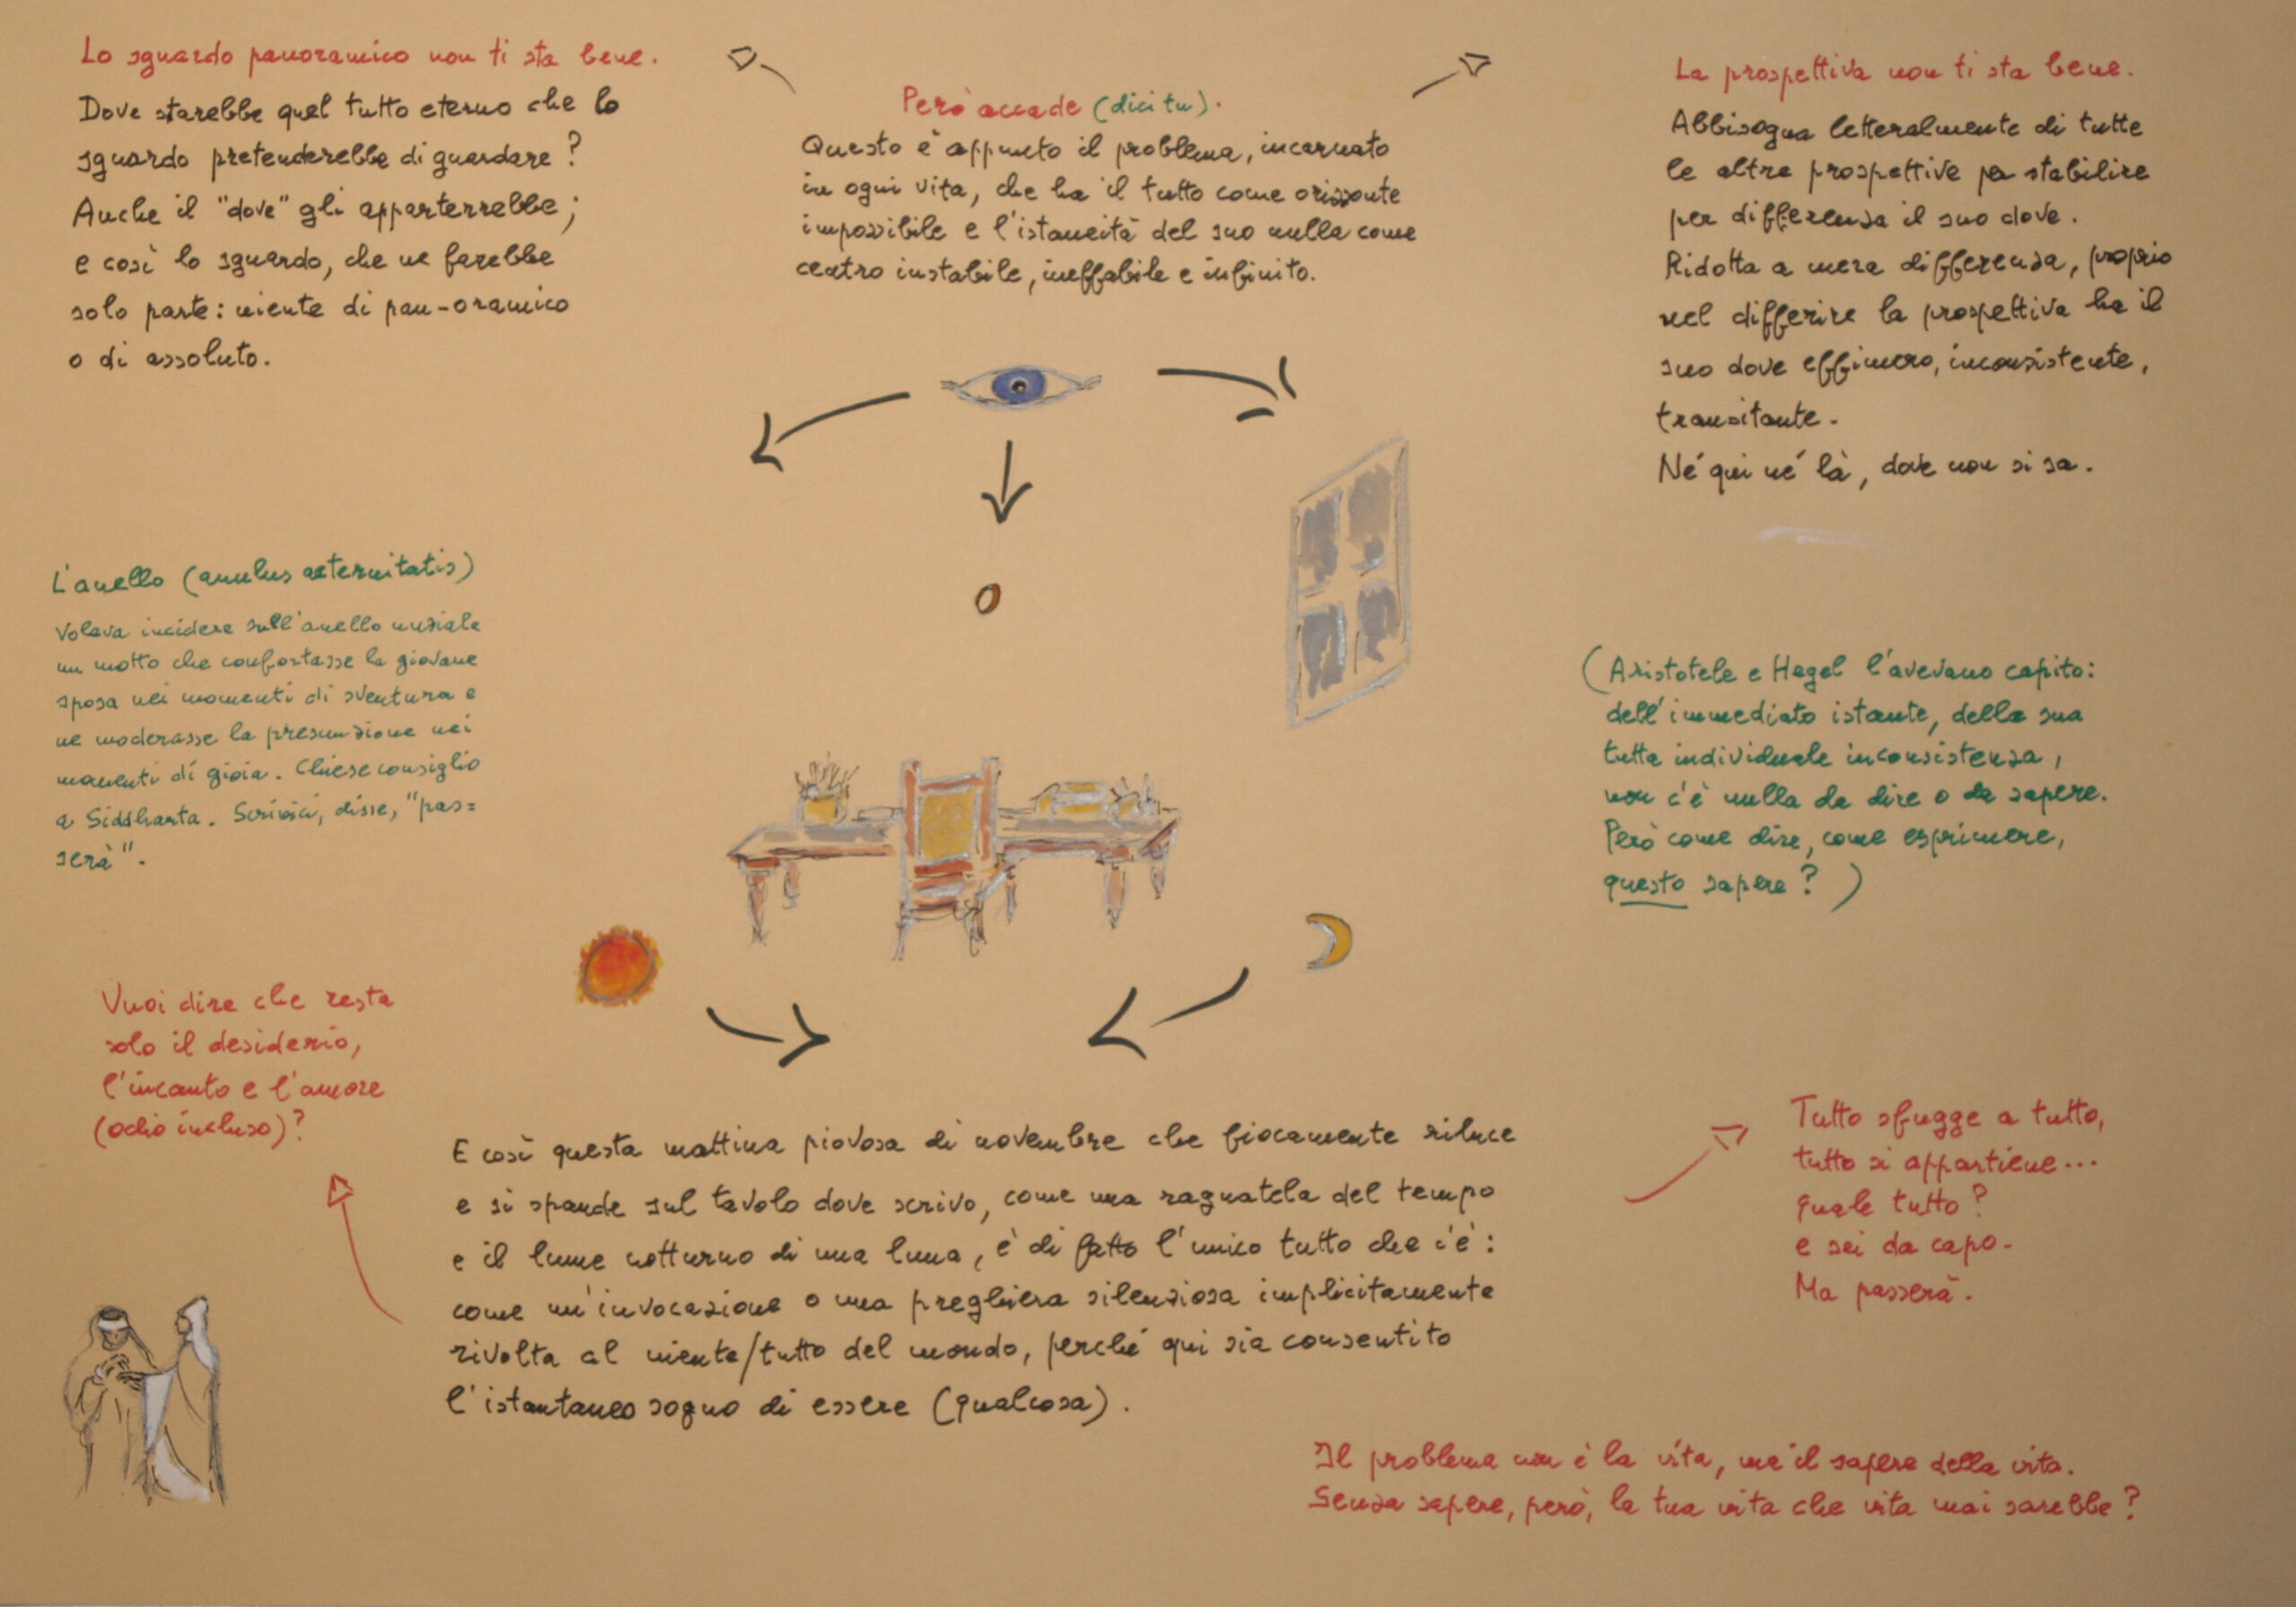 Lo sguardo panoramico non ti sta bene.
Dove starebbe quel tutto eterno che lo
sguardo pretenderebbe di guardare?
Anche il "dove" gli apparterrebbe;
e così lo sguardo, che ne farebbe
solo parte: niente di pan-oramico
o di assoluto.
Però accade (dici tu).
Questo è appunto il problema, incarnato
in ogni vita, che ha il tutto come orizzonte
impossibile e l'istaneità del suo nulla come
centro instabile, ineffabile e infinito.
La prospettiva non ti sta bene.
Abbisogna letteralmente di tutte
le altre prospettive per stabilire
per differenza il suo dove.
Ridotta a mera differenza, proprio
nel differire la prospettiva ha il
suo dove effimero, inconsistente,
transitante.
Né qui né là, dove non si sa.
L'anello (annulus aeternitatis)
Voleva incidere sull'anello nuziale
un motto che confortasse la giovane
sposa nei momenti di sventura e
ne moderasse la presunzione nei
momenti di gioia. Chiese consiglio
a Siddharta. Scrivici, disse, "pas=
serà".
(Aristotele e Hegel l'avevano capito:
dell'immediato istante, della sua
tutta individuale inconsistenza,
non c'è nulla da dire o da sapere.
Però come dire, come esprimere,
questo sapere?)
Vuoi dire che resta
solo il desiderio,
l'incanto e l'amore
(odio incluso)?
E così questa mattina piovosa di novembre che fiocamente riluce
e si spande sul tavolo dove scrivo, come una ragnatela del tempo
e il lume notturno di una luna, è di fatto l'unico tutto che c'è:
come un'invocazione o una preghiera silenziosa implicitamente
rivolta al niente/tutto del mondo, perché qui sia consentito
l'istantaneo sogno di essere (qualcosa).
Tutto sfugge a tutto,
tutto si appartiene...
quale tutto?
e sei da capo.
Ma passerà.
Il problema non è la vita, ma il sapere della vita.
Senza sapere, però, la tua vita che vita mai sarebbe?